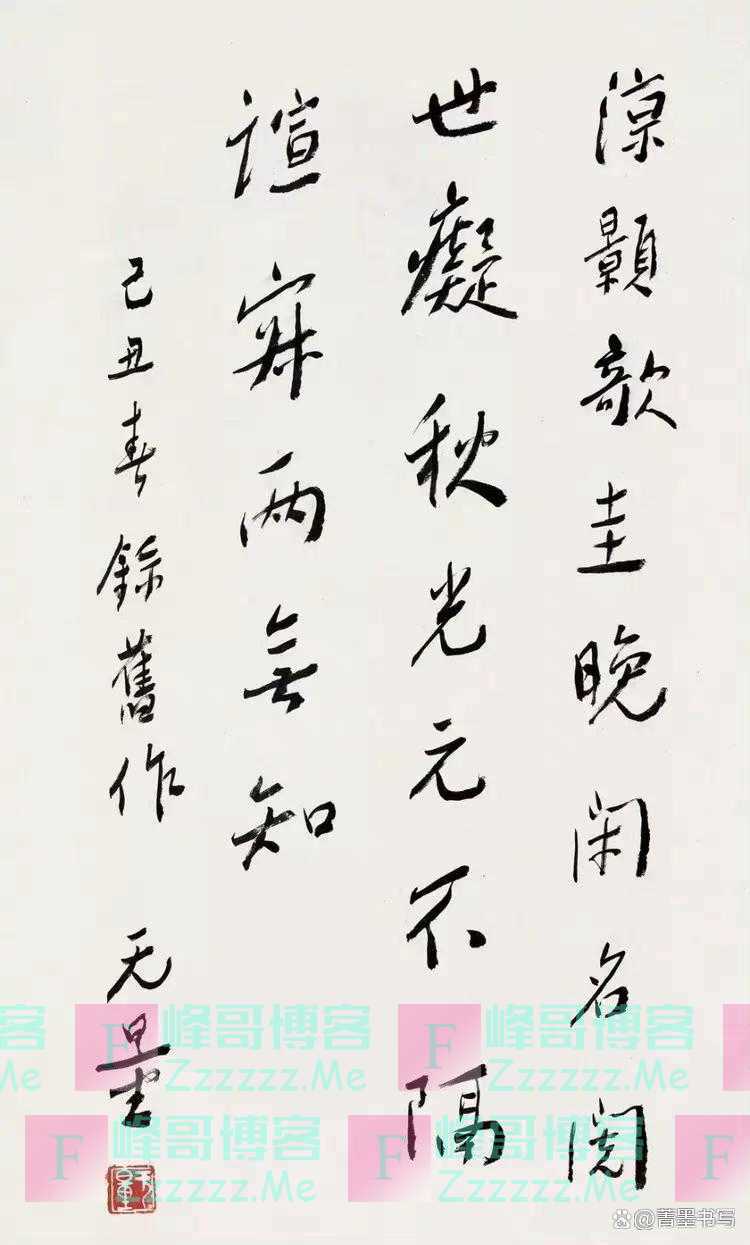 涼顥欹圭晚闲名閱
世癡秋光元不隔
諠寂両無知
己丑春餘舊作 无量书
峰哥博客
Zzzzzz.Me
峰哥博客
Zzzzzz.Me
峰哥博客
Zzzzzz.Me
峰哥博客
Zzzzzz.Me
@菁墨书写